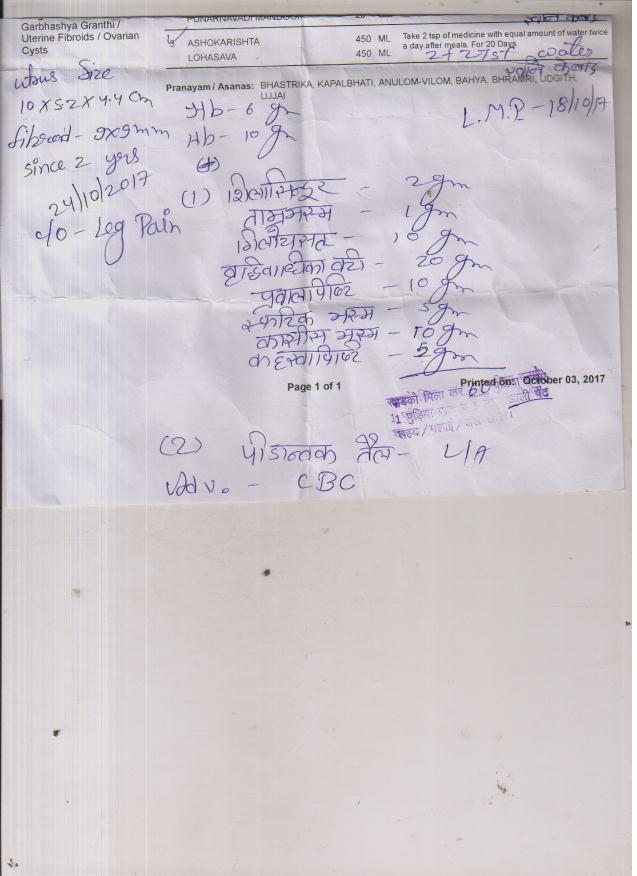 Garbhashya Granthi /
Uterine Fibroids / Ovarian
Cysts
PUNARNAVADI MANDOOR
ASHOKARISHTA 450 ML
LOHASAVA 450 ML
Take 2 tsp of medicine with equal amount of water twice
a day after meals. For 20 Days
2+2 TSF water
Pranayam / Asanas: BHASTRIKA, KAPALBHATI, ANULOM-VILOM, BAHYA, BHRAMRI, UDGITH,
UJJAI
L.M.P - 18/10/17
Size
10 X 5.2 X 4.4 Cm
fibroid - 9x9mm
since 2 yrs
24/10/2017
c/o - Leg Pain
Hb - 6 gm
Hb - 10 gm
(+)
(1) शिलासिन्दूर - 2gm
ताम्रभस्म - 1gm
गिलोयसत - 10 gm
वृद्धिवाधिका वटी - 20 gm
प्रवालपिष्टि - 10 gm
स्फटिक भस्म - 5gm
कासीस भस्म - 10 gm
कहरवापिष्टि - 5gm
Page 1 of 1
Printed on: October 03, 2017
सबको मिला कर 60
खाली पेट
शहद / मलाई
(2) पीडान्तक तैल - L/A
Adv. - CBC